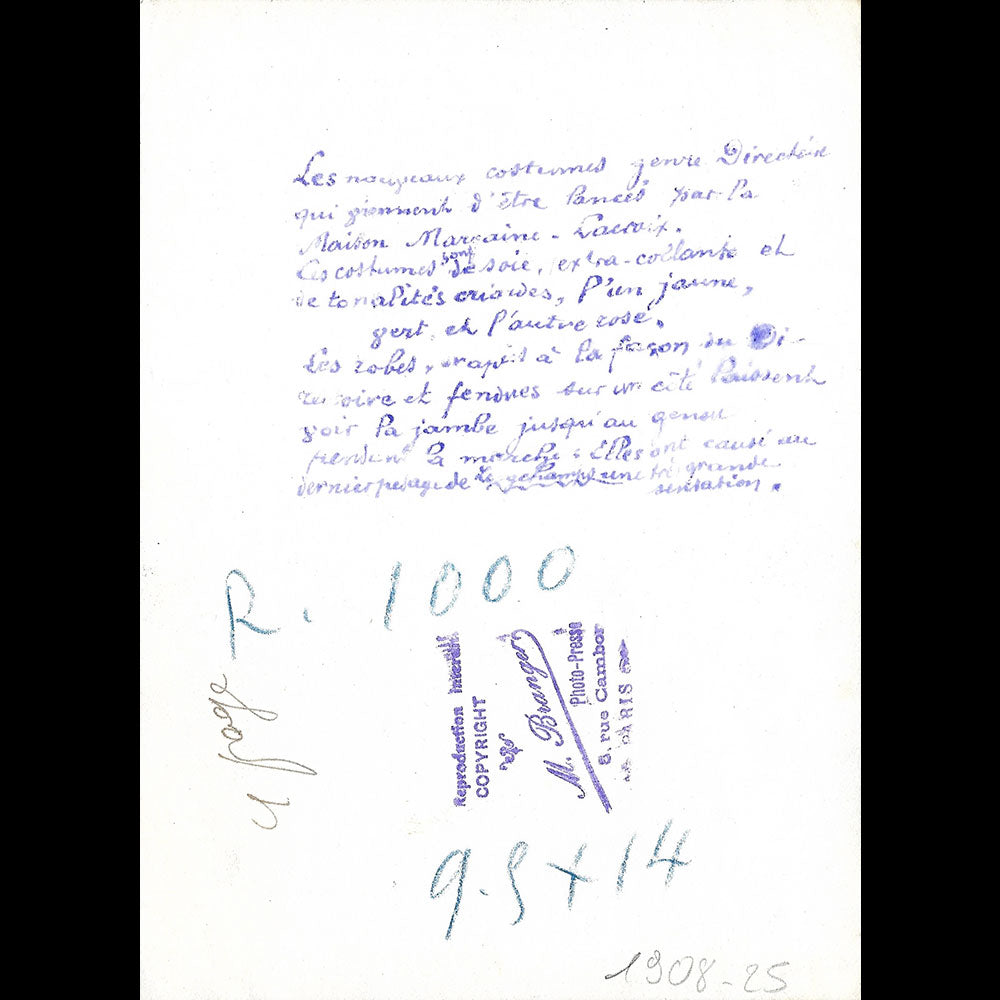 Les nouveaux costumes genre Directoire
qui viennent d'être lancés par la
Maison Margaine-Lacroix.
Ces costumes sont de soie, extra-collants et
de tonalités criardes, l'un jaune,
vert, et l'autre rosé.
Les robes, à la façon du Di-
rectoire et fendues sur un côté laissent
voir la jambe jusqu'au genou
pendant la marche. Elles ont causé au
dernier pesage de Longchamps une très grande
sensation.
R. 1000
Reproduction Interdite
COPYRIGHT
M. Branger
Photo-Presse
8, rue Cambon
PARIS
4 page
9.5 x 14
1908-25